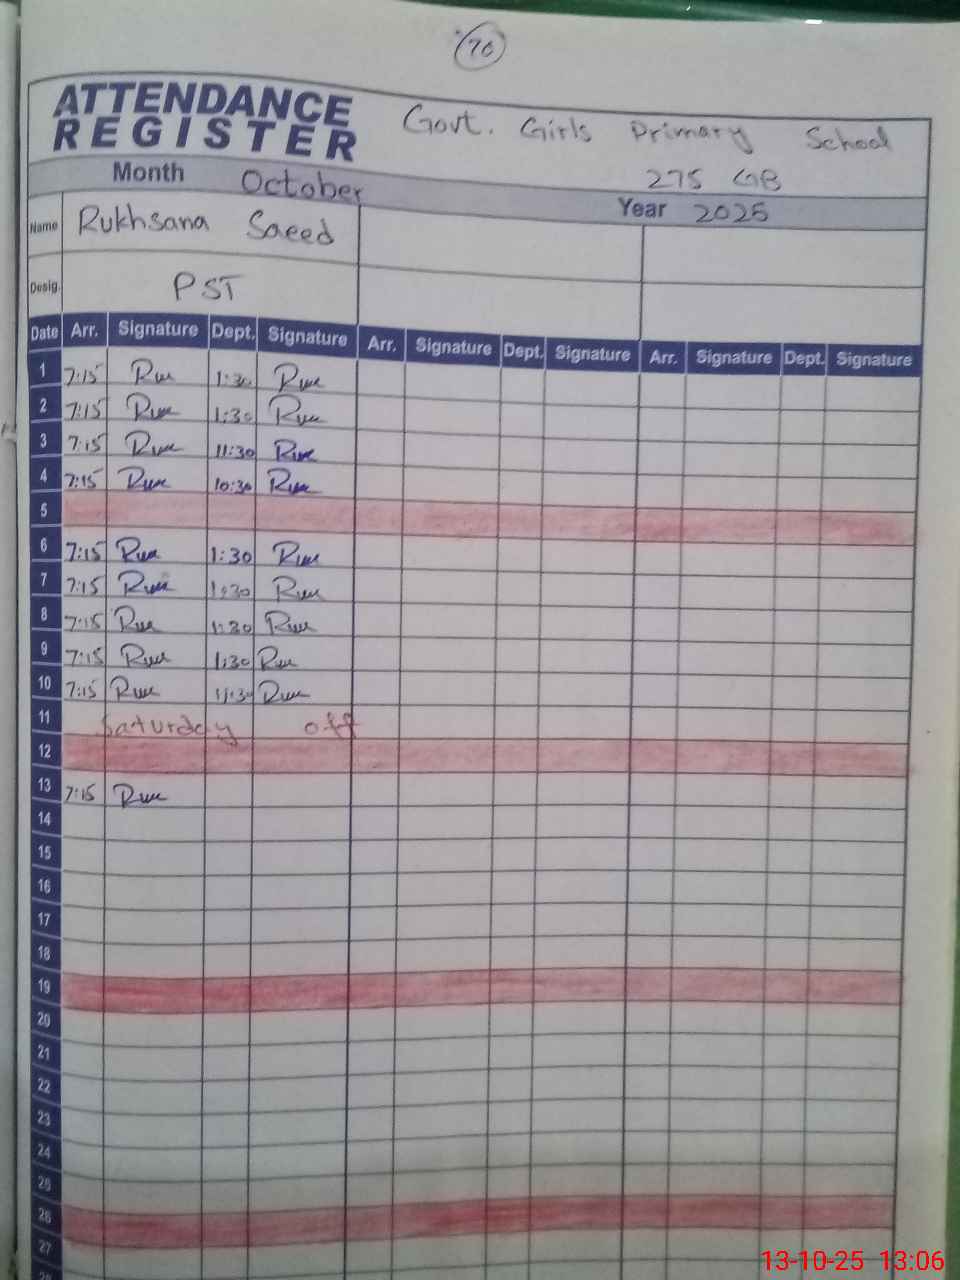 70
ATTENDANCE
REGISTER
Govt. Girls Primary School
275 GB
Month October
Year 2025
Name Rukhsana Saeed
Desig. PST
Date Arr. Signature Dept. Signature Arr. Signature Dept. Signature Arr. Signature Dept. Signature
1 7:15 1:30
2 7:15 1:30
3 7:15 11:30
4 7:15 10:30
5
6 7:15 1:30
7 7:15 1:30
8 7:15 1:30
9 7:15 1:30
10 7:15 11:30
11 Saturday off
12
13 7:15
14
15
16
17
18
19
20
21
22
23
24
25
26
27
28
13-10-25 13:06